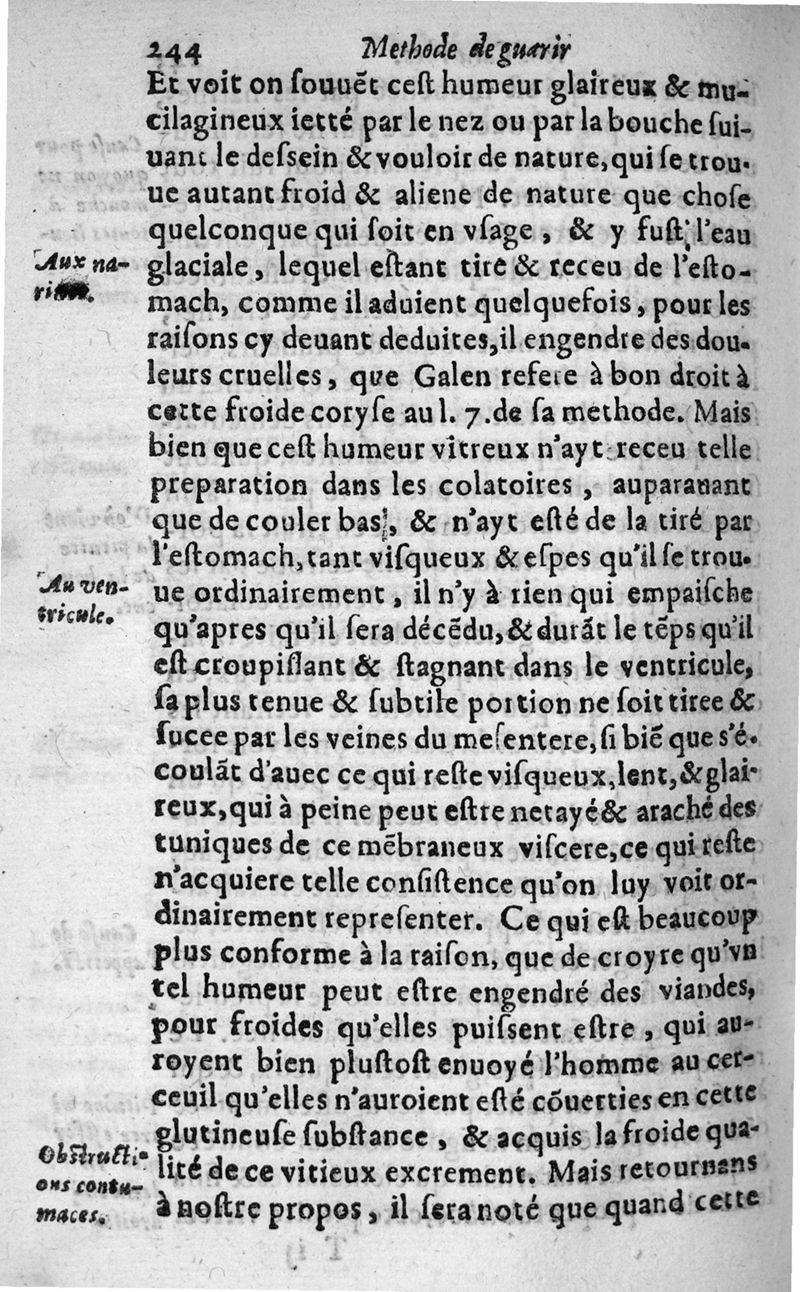 244 Methode de guarir
Et voit on ſouuẽt ceſt humeur glaireux & mu-
cilagineux ietté par le nez ou par la bouche ſui-
uant le deſsein & vouloir de nature, qui ſe trou-
ue autant froid & aliene de nature que choſe
quelconque qui ſoit en vſage, & y fuſt l'eau
Aux na-
glaciale, lequel eſtant tiré & receu de l'eſto-
mach, comme il aduient quelquefois, pour les
raiſons cy deuant deduites, il engendre des dou-
leurs cruelles, que Galen refere à bon droit à
cette froide coryſe au l. 7. de ſa methode. Mais
bien que ceſt humeur vitreux n'ayt receu telle
preparation dans les colatoires, auparauant
que de couler bas, & n'ayt eſté de la tiré par
l'eſtomach, tant viſqueux & eſpes qu'il ſe trou-
Au ven-
tricule.
ue ordinairement, il n'y à rien qui empaiſche
qu'apres qu'il ſera décẽdu, & durãt le tẽps qu'il
eſt croupiſſant & ſtagnant dans le ventricule,
ſa plus tenue & ſubtile portion ne ſoit tiree &
ſucee par les veines du meſentere, ſi biẽ que s'é-
coulãt d'auec ce qui reſte viſqueux, lent, & glai-
reux, qui à peine peut eſtre netayé & araché des
tuniques de ce mẽbraneux viſcere, ce qui reſte
n'acquiere telle conſiſtence qu'on luy voit or-
dinairement repreſenter. Ce qui eſt beaucoup
plus conforme à la raiſon, que de croyre qu'vn
tel humeur peut eſtre engendré des viandes,
pour froides qu'elles puiſsent eſtre, qui au-
royent bien pluſtoſt enuoyé l'homme au cer-
ceuil qu'elles n'auroient eſté cõuerties en cette
glutineuſe ſubſtance, & acquis la froide qua-
Obſtructi-
ons contu-
maces.
lité de ce vitieux excrement. Mais retournans
à noſtre propos, il ſera noté que quand cette